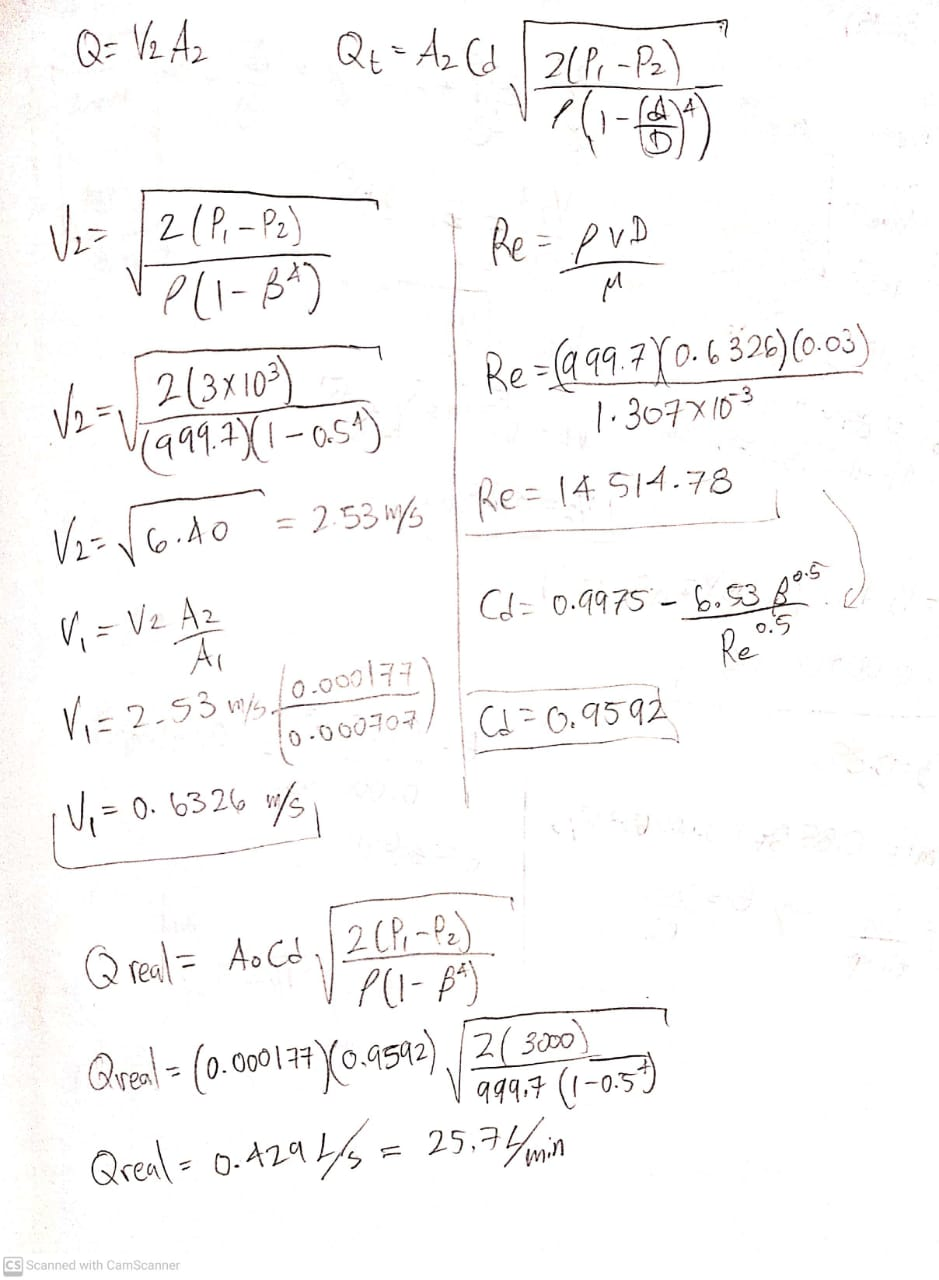 Q = V₂ A₂
Qt = A₂ Cd √(2(P₁ - P₂) / ρ(1 - (d/D)⁴))
V₂ = √(2(P₁ - P₂) / ρ(1 - β⁴))
V₂ = √(2(3x10³) / (999.7)(1 - 0.5⁴))
V₂ = √6.40 = 2.53 m/s
V₁ = V₂ A₂/A₁
V₁ = 2.53 m/s (0.000177/0.000707)
V₁ = 0.6326 m/s
Re = ρVD/μ
Re = (999.7)(0.6326)(0.03) / 1.307x10⁻³
Re = 14 514.78
Cd = 0.9975 - 6.53 β^0.5 / Re^0.5
Cd = 0.9592
Q real = Ao Cd √(2(P₁ - P₂) / ρ(1 - β⁴))
Qreal = (0.000177)(0.9592) √(2(3000) / 999.7 (1 - 0.5⁴))
Qreal = 0.429 L/s = 25.7 L/min
CS Scanned with CamScanner